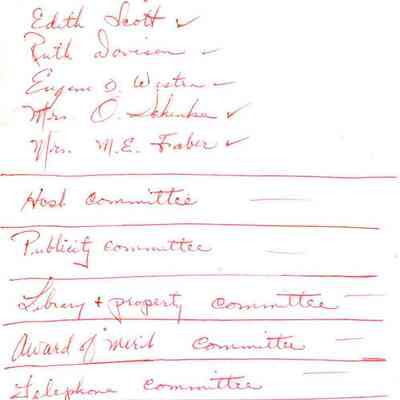 Edith Scott ✓
Ruth Davison ✓
Eugene D. Weston –
Mrs. O. Schenker ✓
Mrs. M.E. Fraber ✓
Host Committee —
Publicity Committee —
Library + property Committee —
Award of Merit Committee —
Telephone Committee —